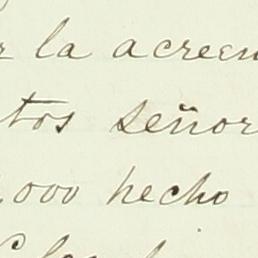 r la acreen
tos señor
.000 hecho